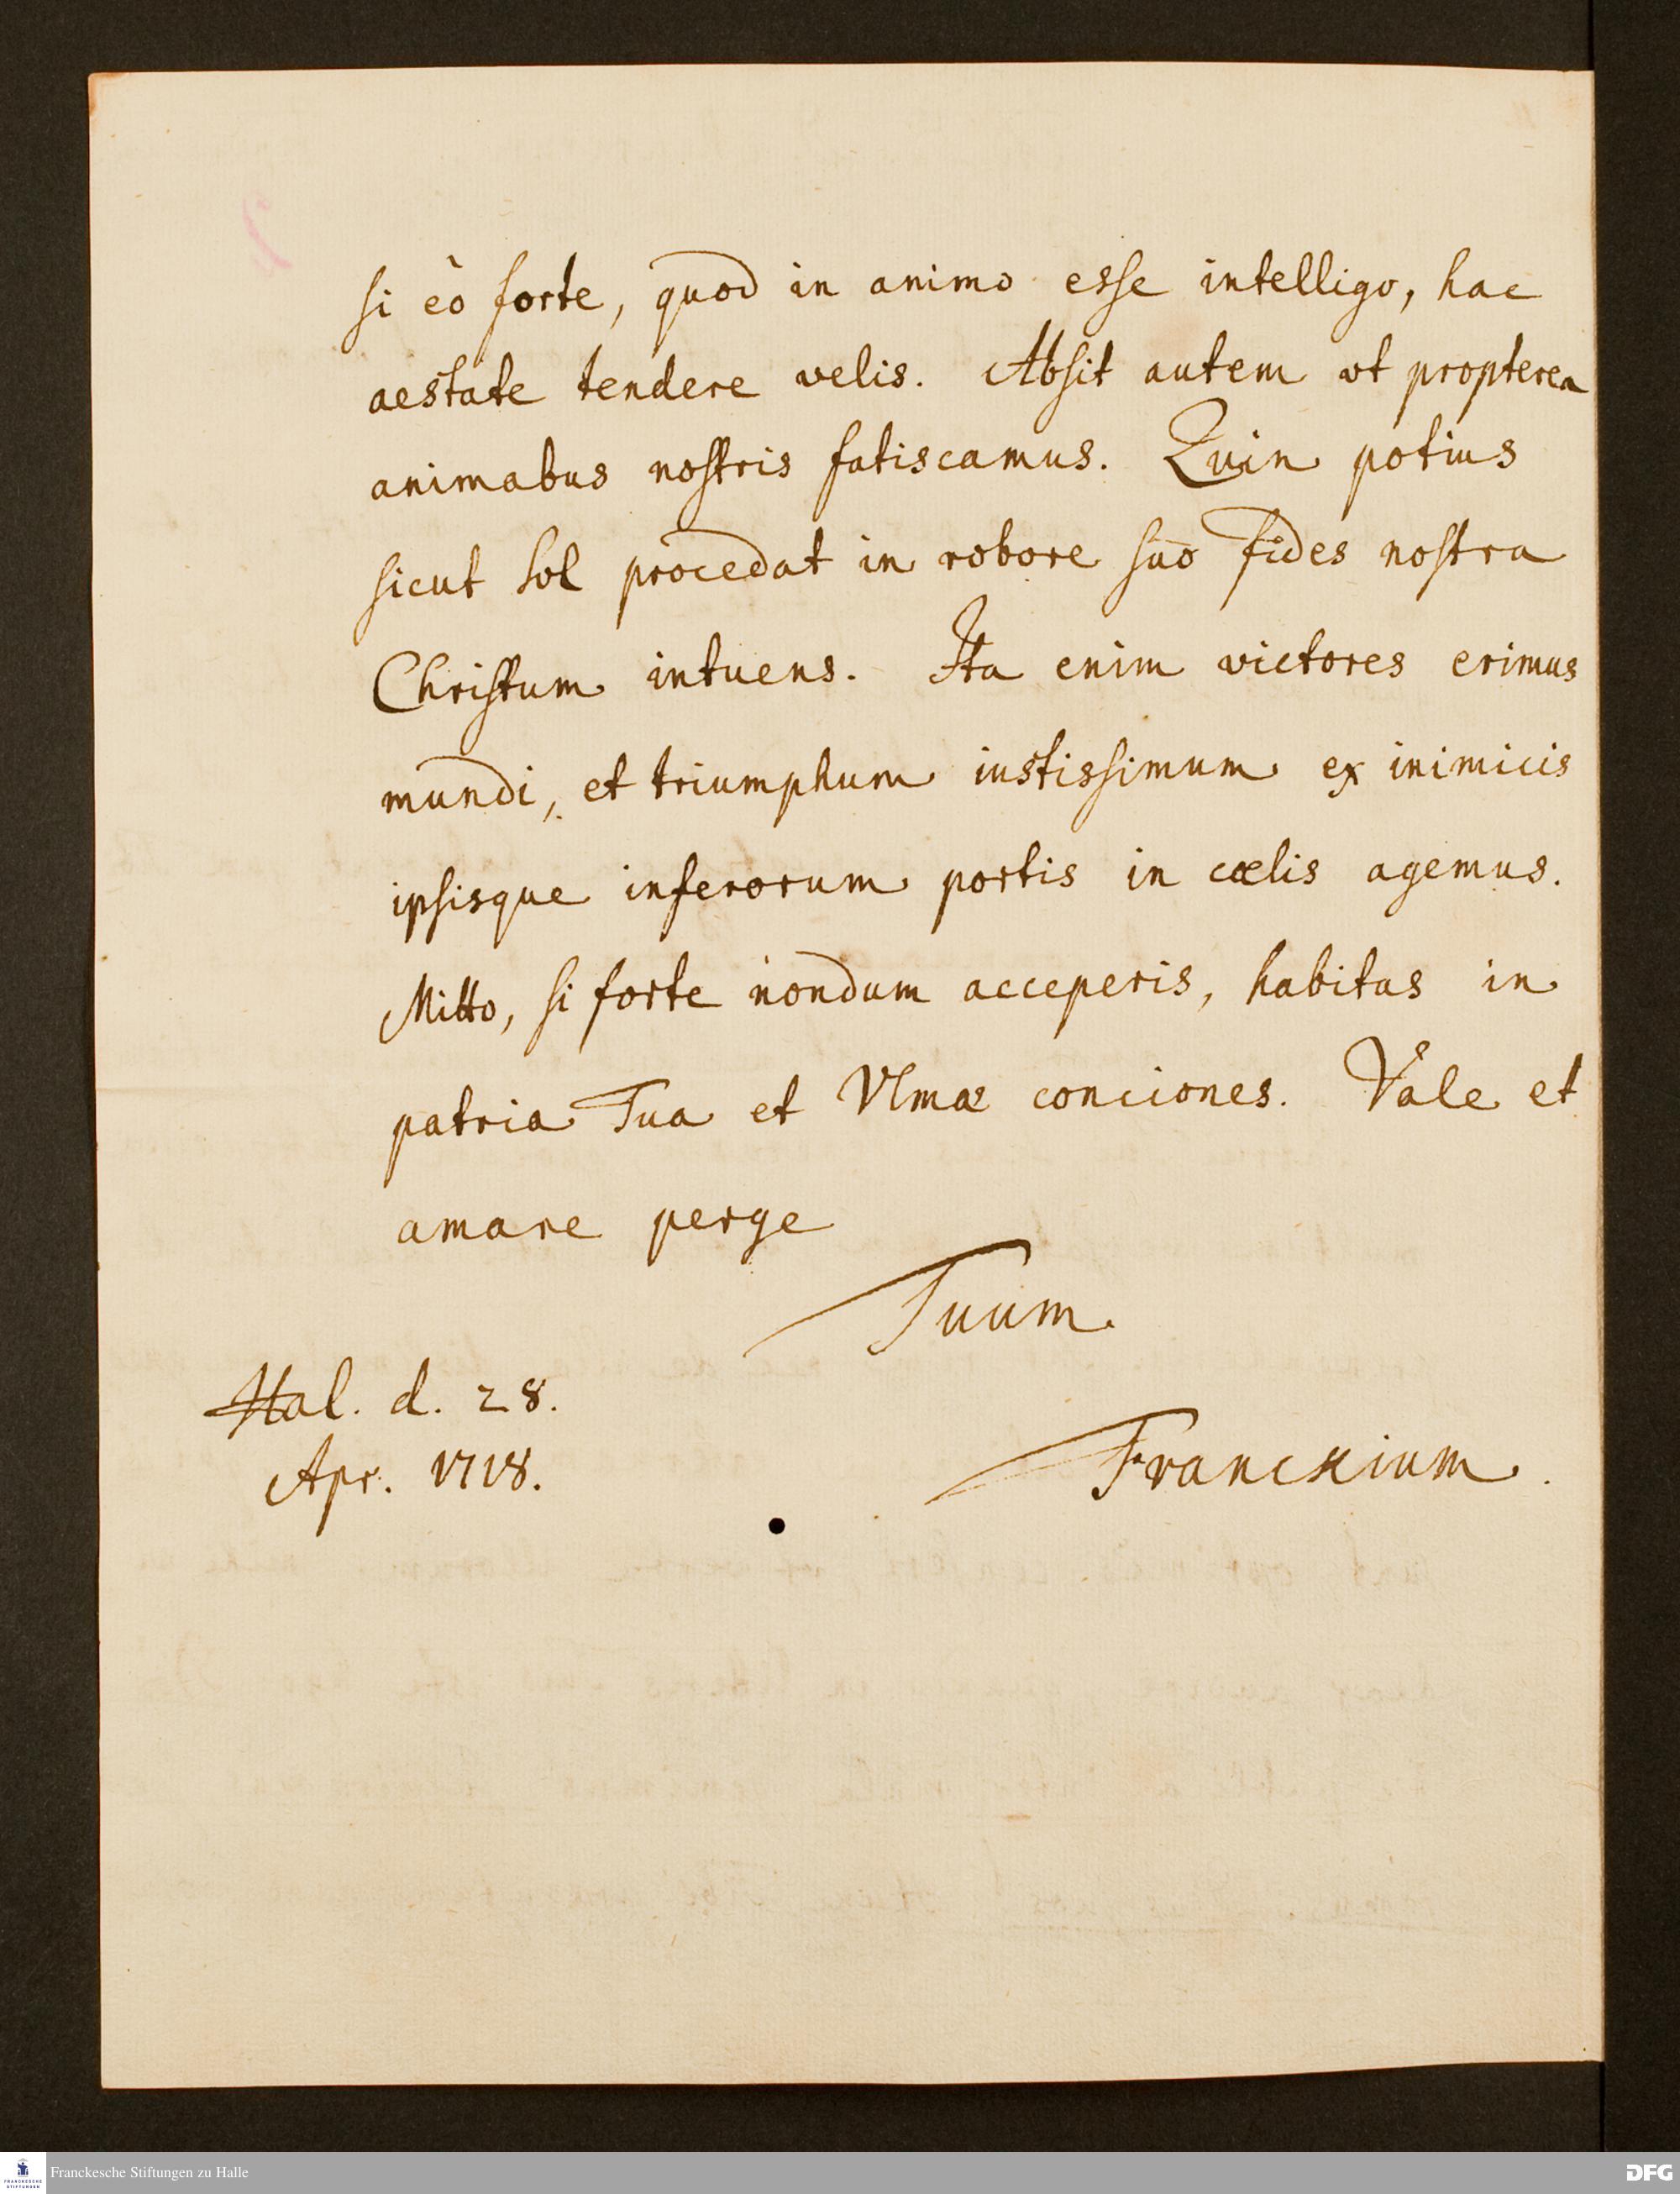 si eò forte, quod in animo esse intelligo, hac
aestate tendere velis. Absit autem vt propterea
animabus nostris fatiscamus. Quin potius
sicut Sol procedat in robore suo fides nostra
Christum intuens. Ita enim victores erimus
mundi, et triumphum iustissimum ex inimicis
ipsisque inferorum portis in cœlis agemus.
Mitto, si forte nondum acceperis, habitas in
patria Tua et Vlmæ conciones. Vale et
amare perge
Tuum.
Hal. d. 28.
Apr. 1718.
Franckium.
Franckesche Stiftungen zu Halle
FRANCKESCHE
STIFTUNGEN
DFG